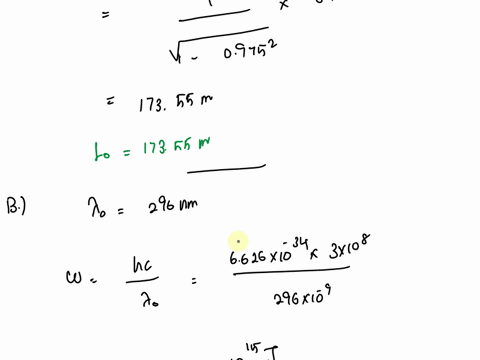 =
√1 - 0.975²
= 173.55 m
Lo = 173.55 m
B.) λ₀ = 296 nm
ω = hc / λ₀ = 6.626×10⁻³⁴ × 3×10⁸ / 296×10⁻⁹